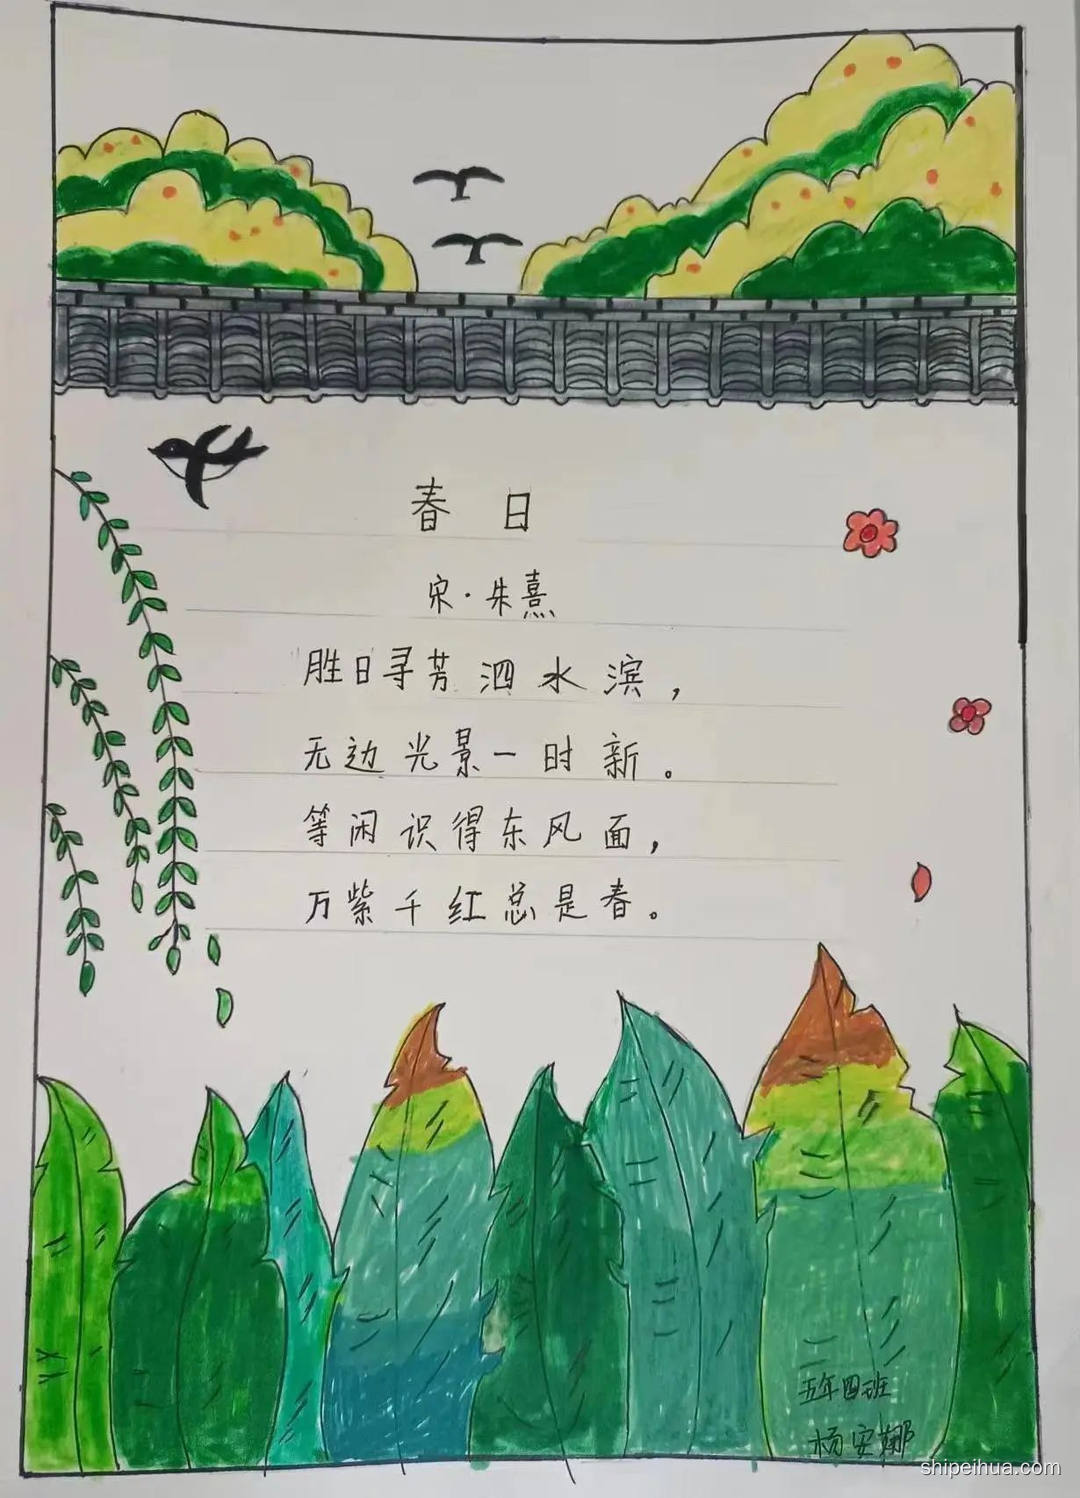 春日
宋·朱熹
胜日寻芳泗水滨，
无边光景一时新。
等闲识得东风面，
万紫千红总是春。
五年四班
杨安娜
shipeihua.com